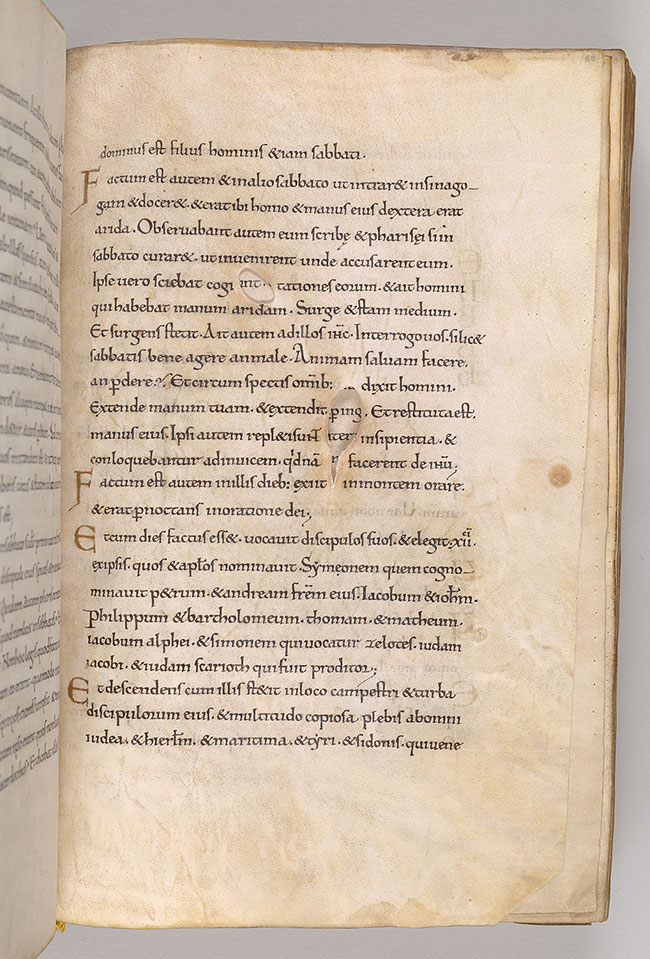 dominus est filius hominis & iam sabbati.
Factum est autem & in alio sabbato ut intrar& in sinago
gam & docer&. & erat ibi homo & manus eius dextera erat
arida. Observabant autem eum scribę & pharisei si in
sabbato curar&. ut invenirent unde accusarent eum.
Ipse vero sciebat cogitationes eorum. & ait homini
qui habebat manum aridam. Surge & sta in medium.
Et surgens stetit. Ait autem ad illos ihc. Interrogo vos. si lic&
sabbatis bene agere an male. Animam salvam facere.
an pdere? Et circum spectis omib: dixit homini.
Extende manum tuam. & extendit Et restituta est.
manus eius. Ipsi autem repl&i sunt insipientia. &
conloquebantur ad invicem. qdnā facerent de ihu;
Factum est autem in illis dieb: exiit in montem orare.
& erat pnoctans in oratione dei;
Et cum dies factus ess&. vocavit discipulos suos. & elegit. xii.
ex ipsis. quos & aplos nominavit. Symeonem quem cogno
minavit p&rum. & andream frem eius. Iacobum & iohm.
Philippum & bartholomeum. thomam. & matheum.
iacobum alphei. & simonem qui vocatur zelotes. iudam
iacobi. & iudam scarioth qui fuit proditor;
Et descendens cum illis st&it in loco campestri & turba
discipulorum eius. & multitudo copiosa plebis ab omni
iudea. & hierlm. & maritima. & tyri. & sidonis. qui vene